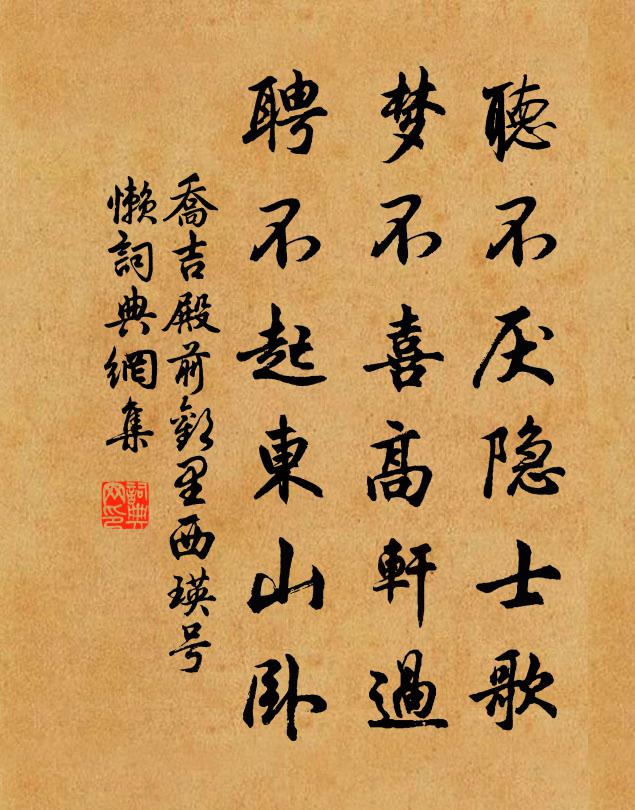 聽不厌隐士歌
梦不喜高軒過
聘不起東山卧
喬吉殿前歡里西瑛号
懒詞典網集
詞典网印